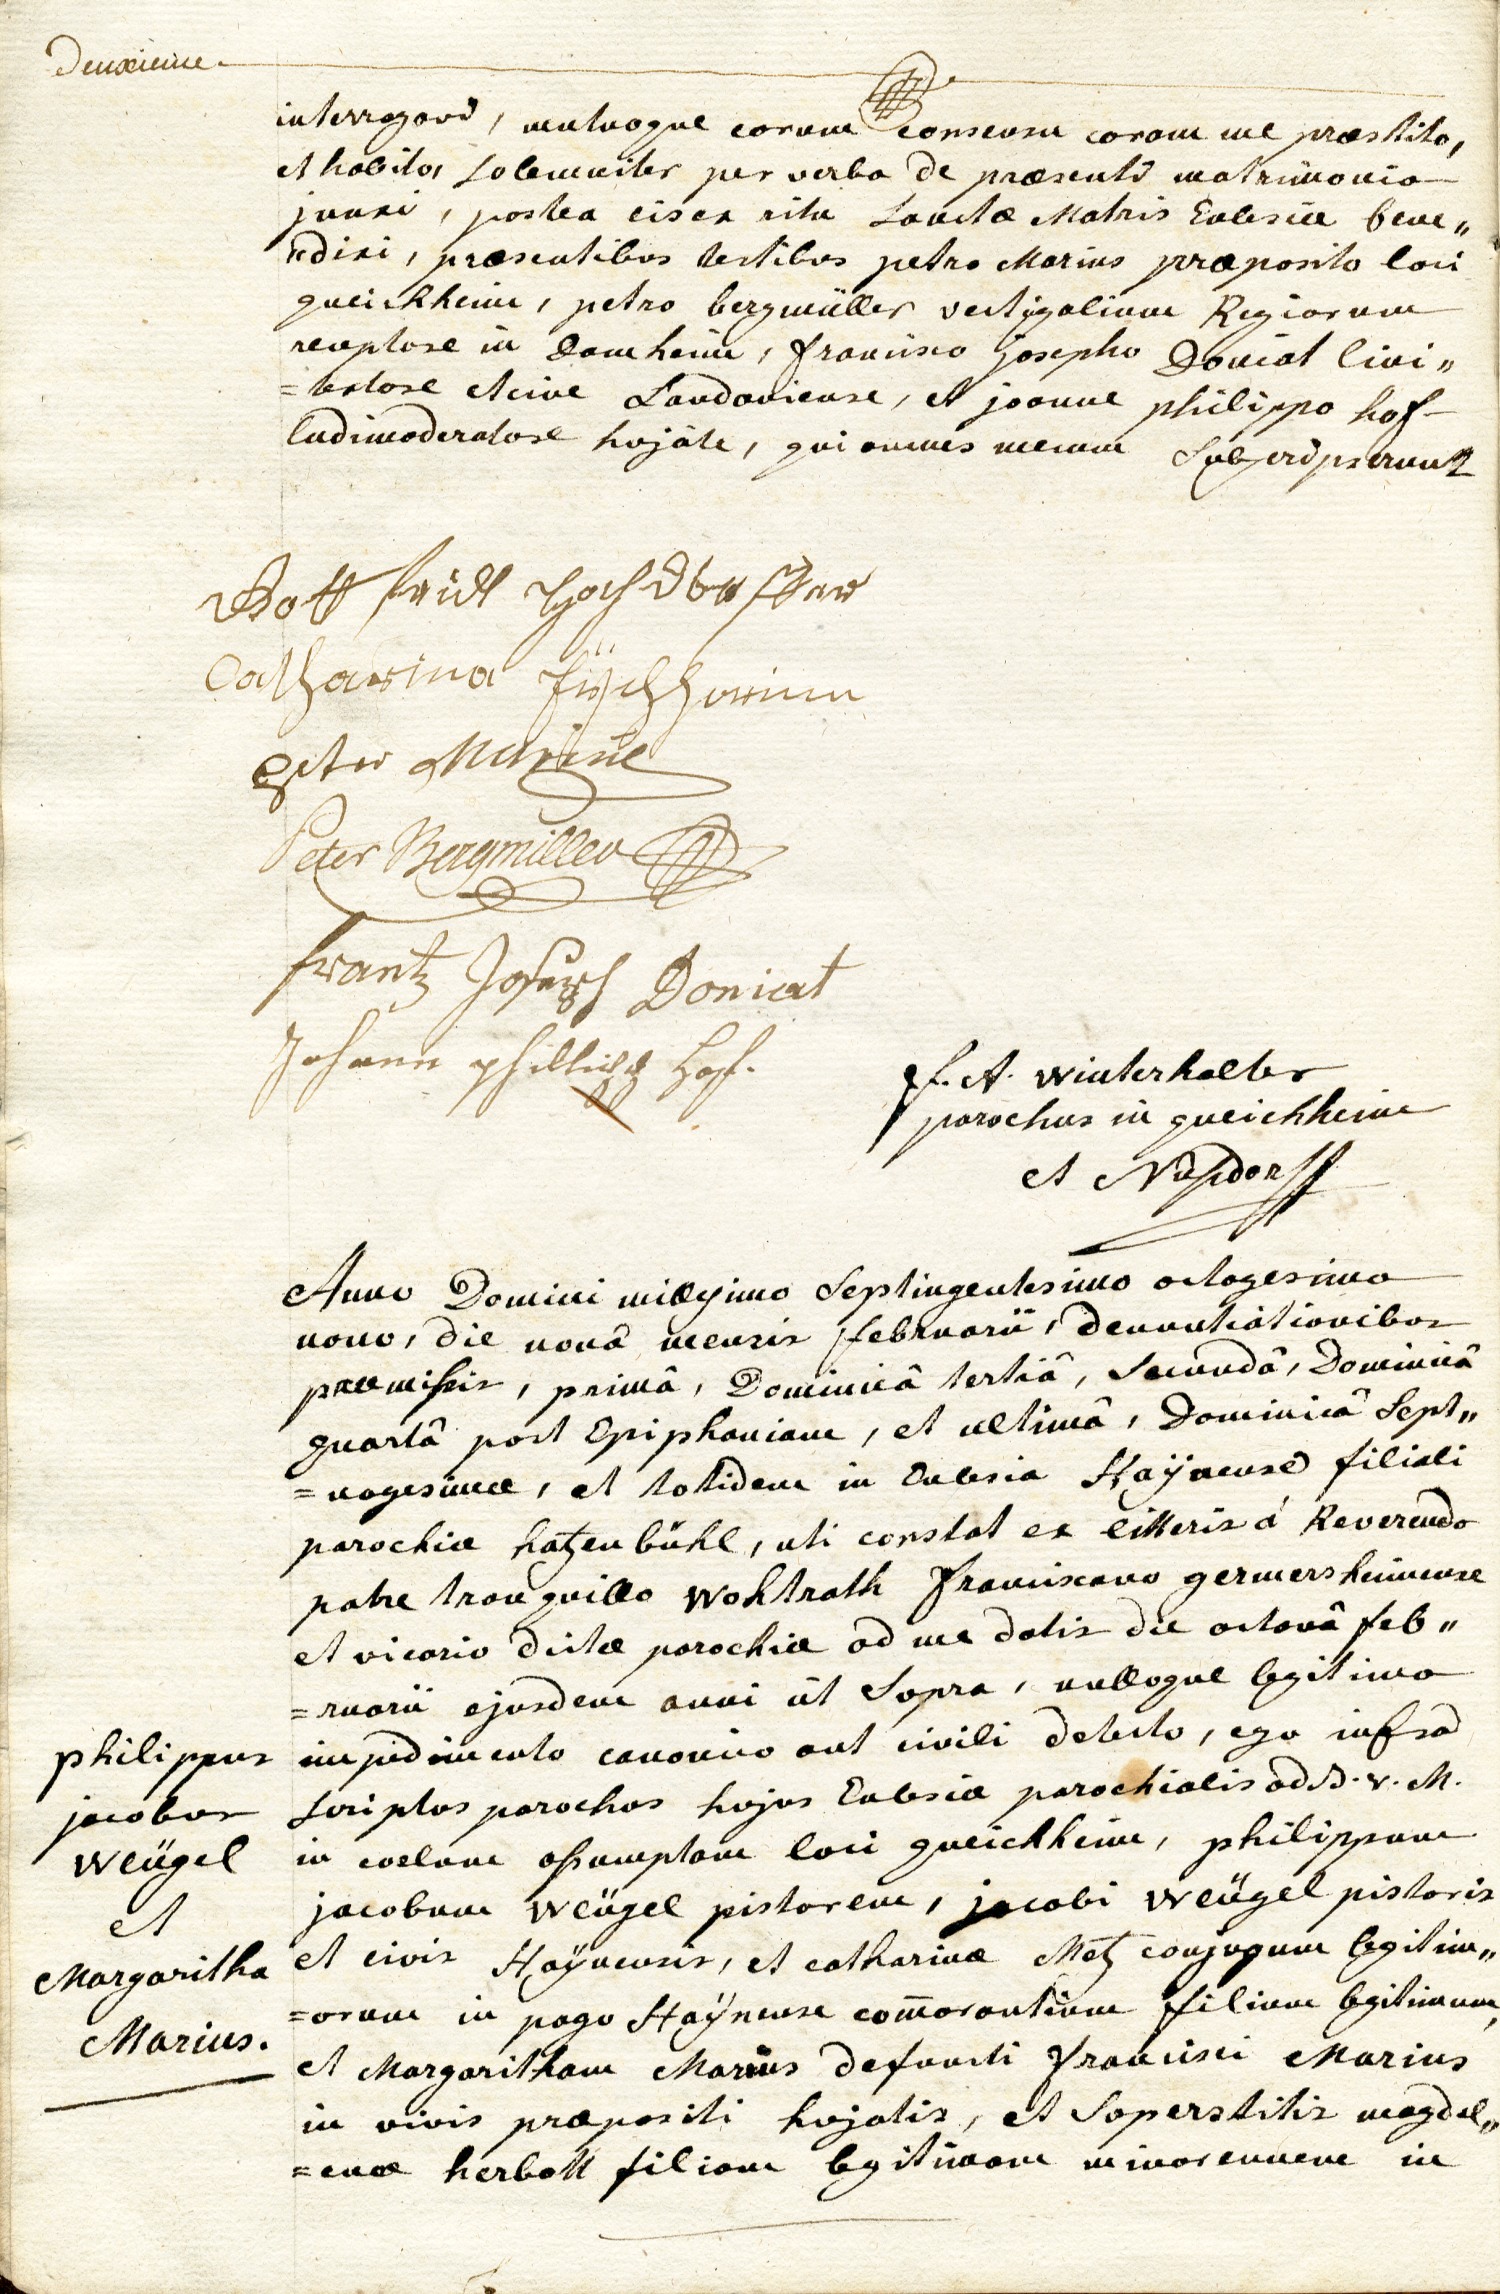 Deuxieme.
interrogavi, mutuoque eorum consensu coram me præstito,
et habito, solemniter per verba de præsenti matrimonio
junxi, postea eis ex ritu Sanctæ Matris Ecclesiæ bene„
„dixi, præsentibus testibus petro Marius præposito loci
queichheim, petro bergmüller vectigalium Regiorum
receptore in Damheim, francisco josepho Doniat civi„
=
et cive Landaviense, et joanne philippo hof
ludimoderatore hujate, qui omnes mecum Subscripserunt
Gottfridt
Catharina
peter Marius
Peter Bergmiller
frantz Joseph Doniat
Johann phillipp Hof.
f. A. Winterhalter
parochus in queichheim
et Nusdorff
Anno Domini millesimo Septingentesimo octogesimo
nono, die nonâ mensis februarii, denuntiationibus
præmissis, primâ, Dominicâ tertiâ, Secundâ, Dominicâ
quartâ post Epiphaniam, et ultimâ, Dominicâ Sept„
=uagesimæ, et totidem in Ecclesia Haÿnense filiali
parochiæ hatzenbühl, uti constat ex litteris á Reverendo
patre tranquillo Wohlrath franciscano germersheimense
et vicario dictæ parochiæ ad me datis die octavâ feb„
=ruarii ejusdem anni ût Supra, nulloque legitimo
impedimento canonico aut civili detecto, ego infra
scriptus parochus hujus Ecclesiæ parochialis ad B. V. M.
in coelum assumptam loci queichheim, philippum
jacobum Weügel pistorem, jacobi Weügel pistoris
et civis Haÿnensis, et catharinæ Metz conjugum legitim„
=orum in pago Haÿnense com̄orantium filium legitimum,
et Margaritham Marius defuncti francisci Marius
in vivis præpositi hujatis, et Superstitis magdal„
=enæ herbott filiam legitimam minorennem in
philippus
jacobus
Weügel
et
Margaritha
Marius.